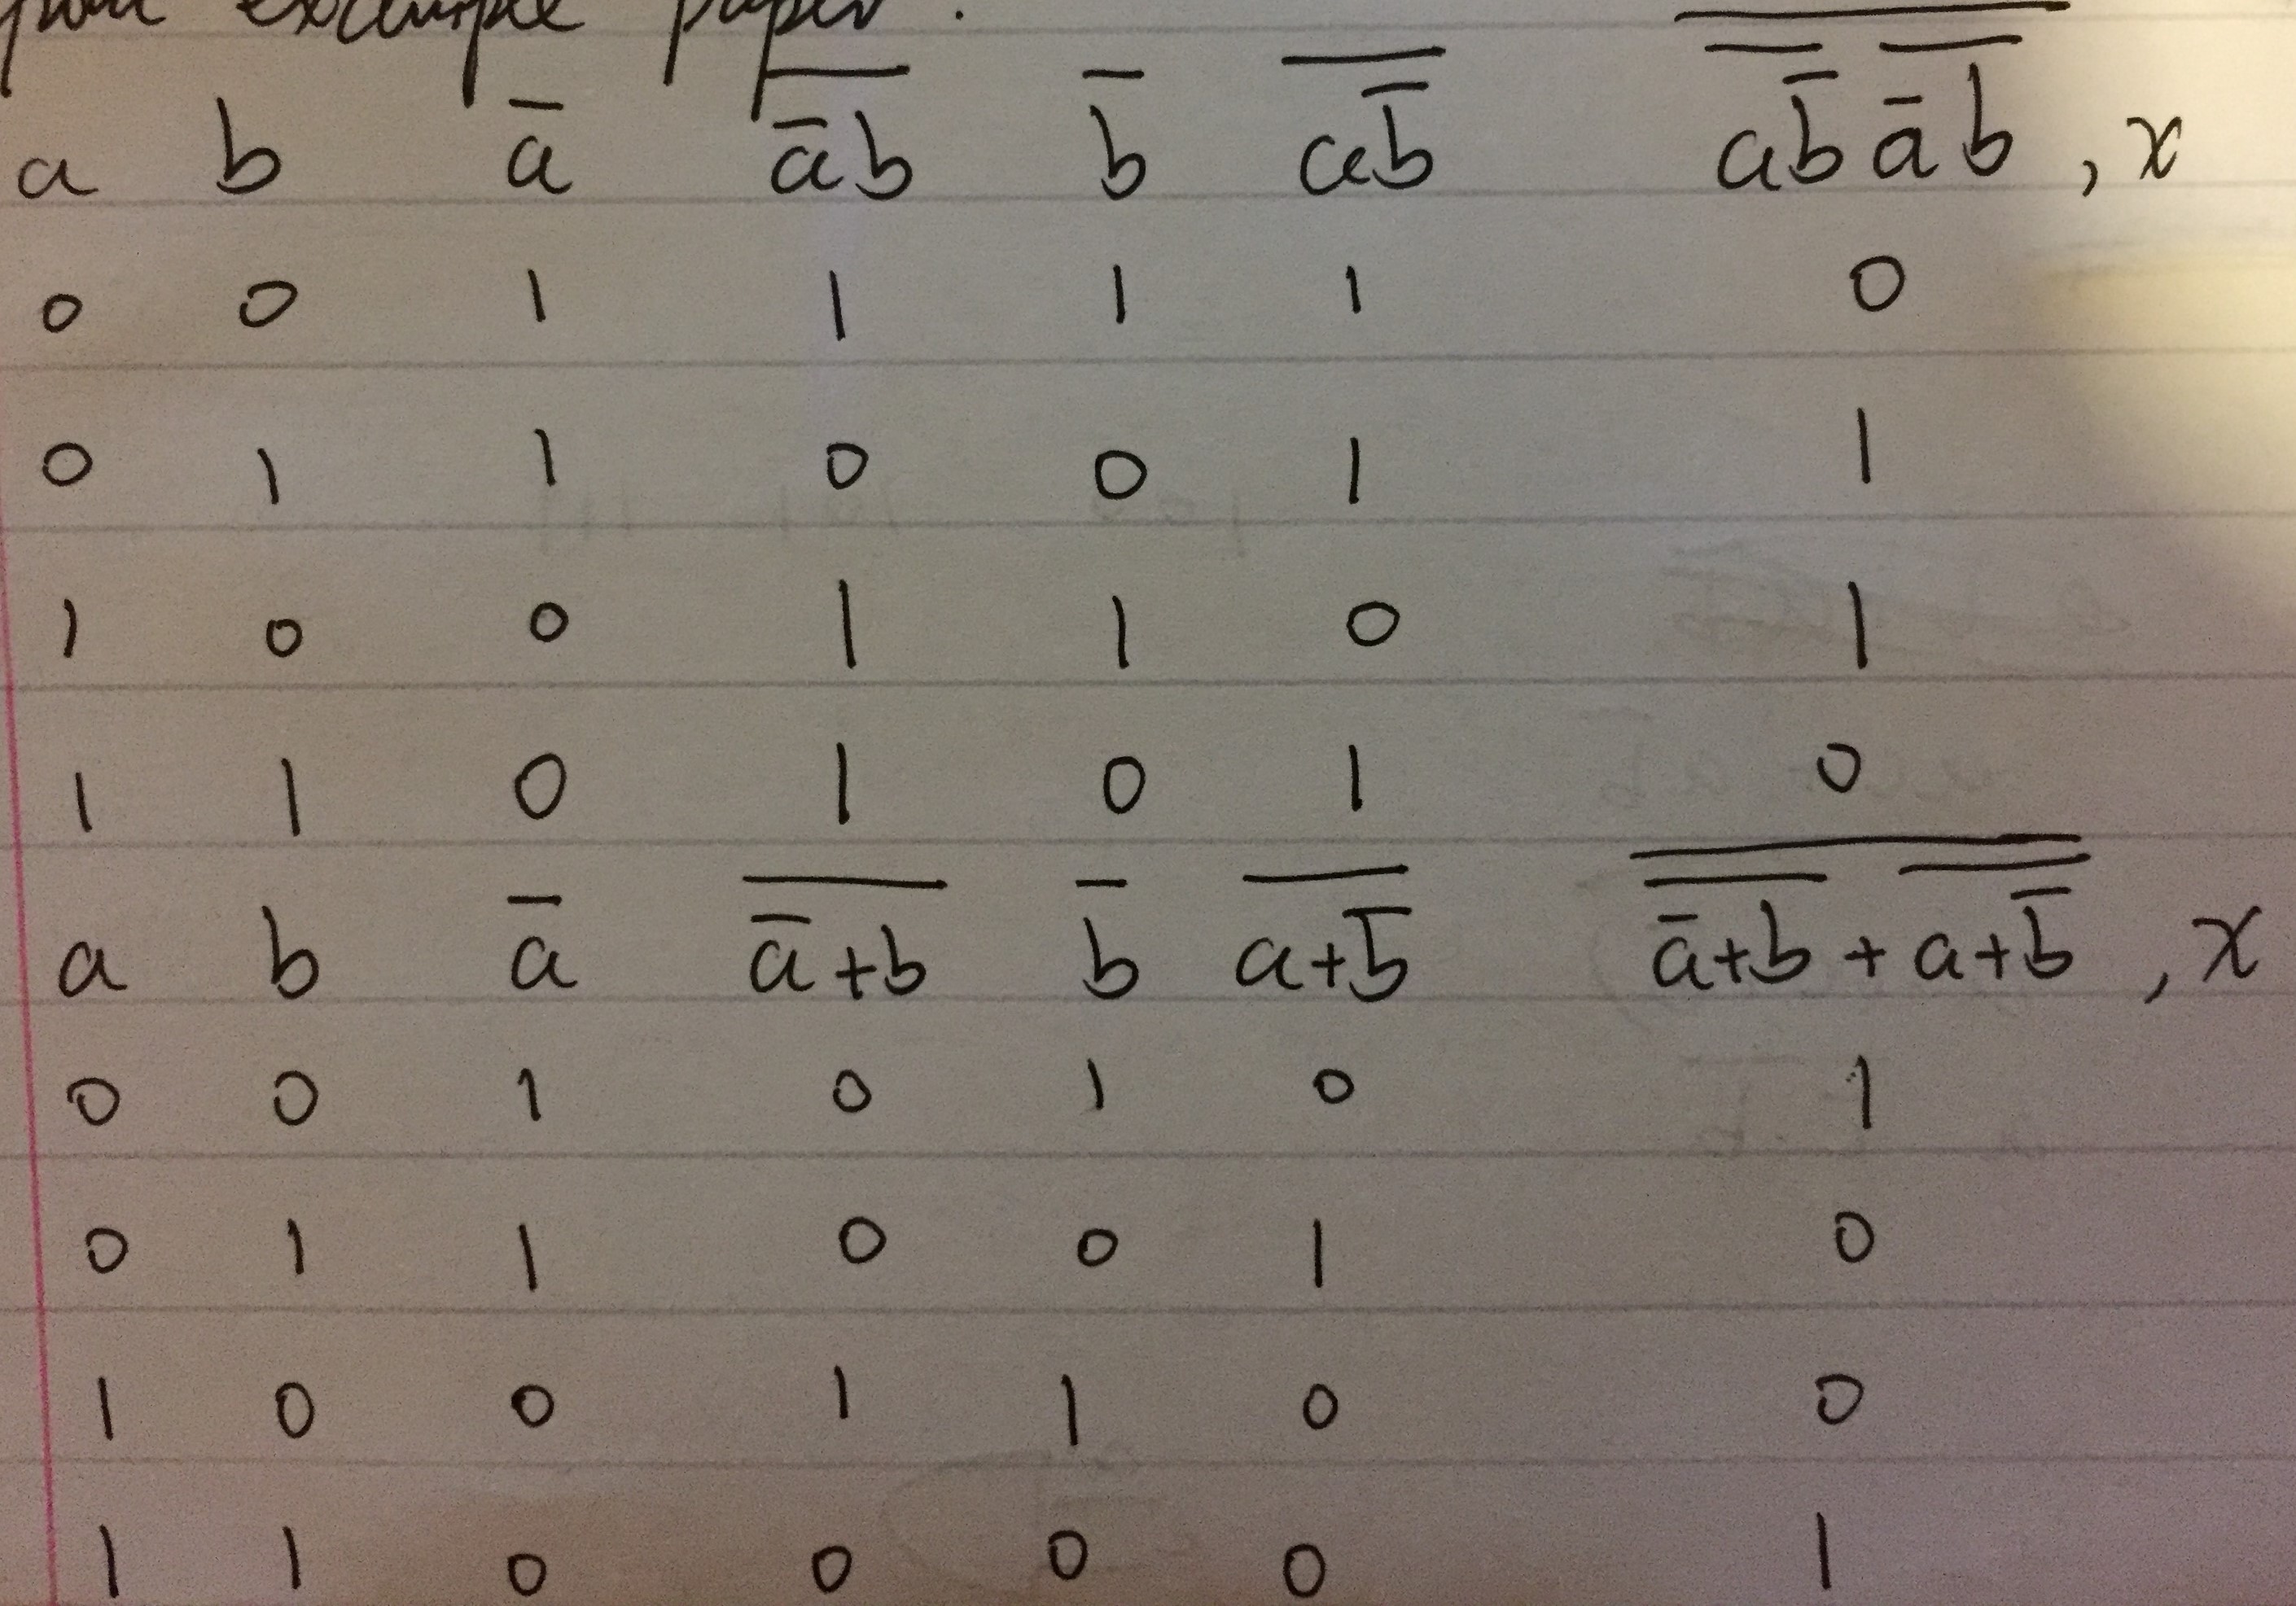 your example paper.
a b a̅ \overline{a̅b} b̅ \overline{ab̅} \overline{\overline{ab̅} \overline{a̅b}} , x
0 0 1 1 1 1 0
0 1 1 0 0 1 1
1 0 0 1 1 0 1
1 1 0 1 0 1 0
a b a̅ \overline{a̅+b} b̅ \overline{a+b̅} \overline{\overline{a̅+b} + \overline{a+b̅}} , x
0 0 1 0 1 0 1
0 1 1 0 0 1 0
1 0 0 1 1 0 0
1 1 0 0 0 0 1